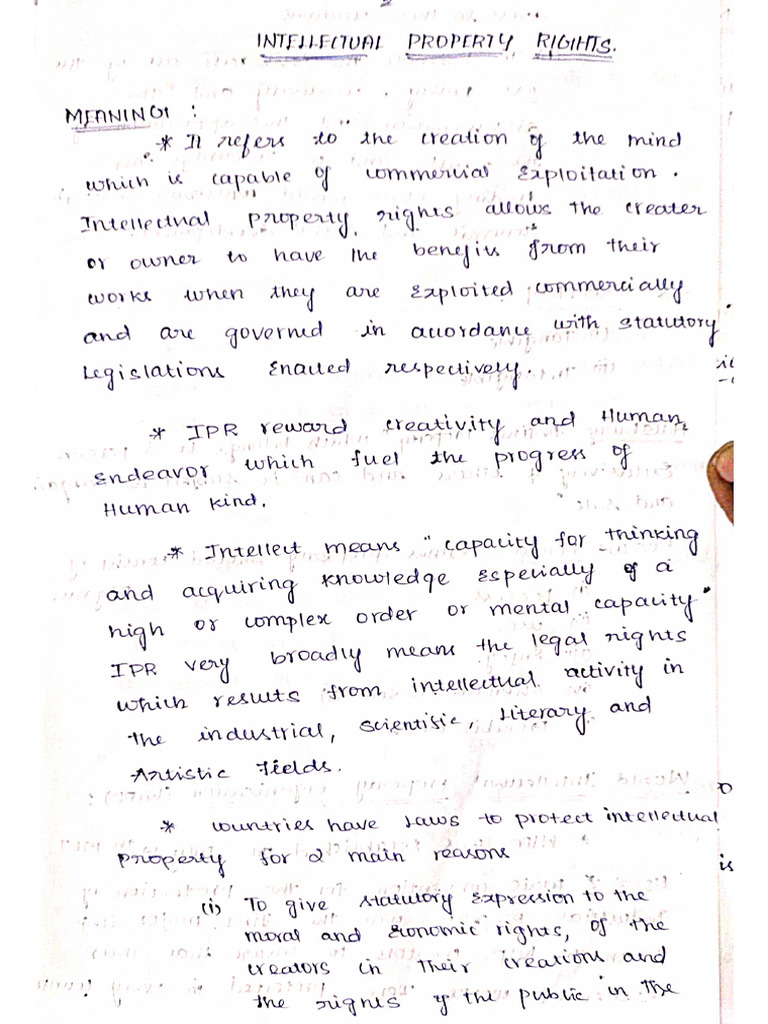 INTELLECTUAL PROPERTY RIGHTS.
MEANING :
* It refers to the creation of the mind
which is capable of commercial Exploitation.
Intellectual property rights allows the creater
or owner to have the benefits from their
works when they are Exploited commercially
and are governed in accordance with statutory
Legislations Enacted respectively.
* IPR reward creativity and Human
Endeavor which fuel the progress of
Human kind.
* Intellect means "capacity for thinking
and acquiring knowledge Especially of a
high or complex order or mental capacity"
IPR very broadly means the legal rights
which results from intellectual activity in
the industrial, scientific, Literary and
Artistic Fields.
* Countries have Laws to protect intellectual
property for 2 main reasons
(i) To give statutory Expression to the
moral and Economic rights, of the
creators in their creations and
the rights of the public in the